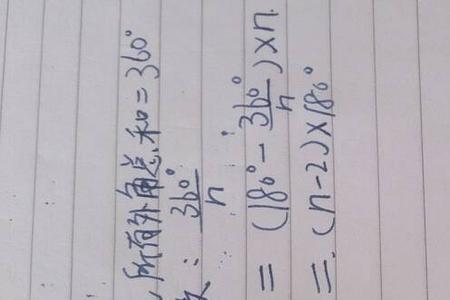 所有外角总和=360°
: 360°/n
=(180°-360°/n)×n
=(n-2)×180°